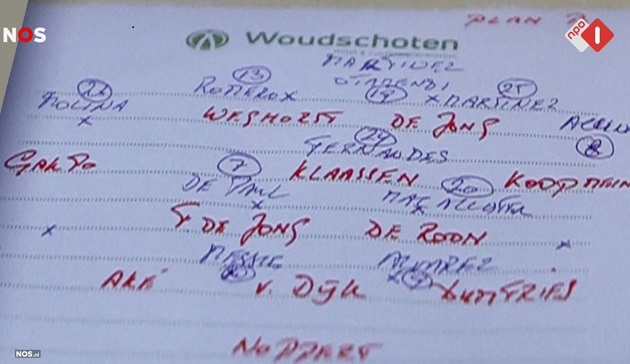 NOS
PLAN
npo 1
Woudschoten
MARTINEZ
26 13 OTAMENDI 25
MOLINA ROMERO x 19 x MARTINEZ ACUÑA
x WEGHORST DE JONG 8
24
FERNANDES
GAKPO 7 KLAASSEN 20 KOOPMEIN
DE PAUL MAC ALLISTER
x x
x F DE JONG DE ROON x
MESSI ALVAREZ
x 9
AKÉ v. DIJK DUMFRIES
NOPPERT
NOS.nl